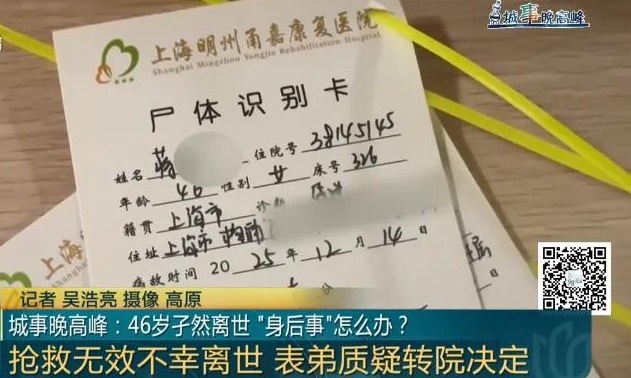 城事晚高峰
上海明州甬嘉康复医院
Shanghai Mingzhou Yongjia Rehabilitation Hospital
尸体识别卡
姓名 蒋 住院号 38145145
年龄 46 性别 女 床号 326
籍贯 上海市 诊断
住址 上海市
病故时间 2025年12月14日
记者 吴浩亮 摄像 高原
城事晚高峰：46岁孑然离世 "身后事"怎么办？
抢救无效不幸离世 表弟质疑转院决定